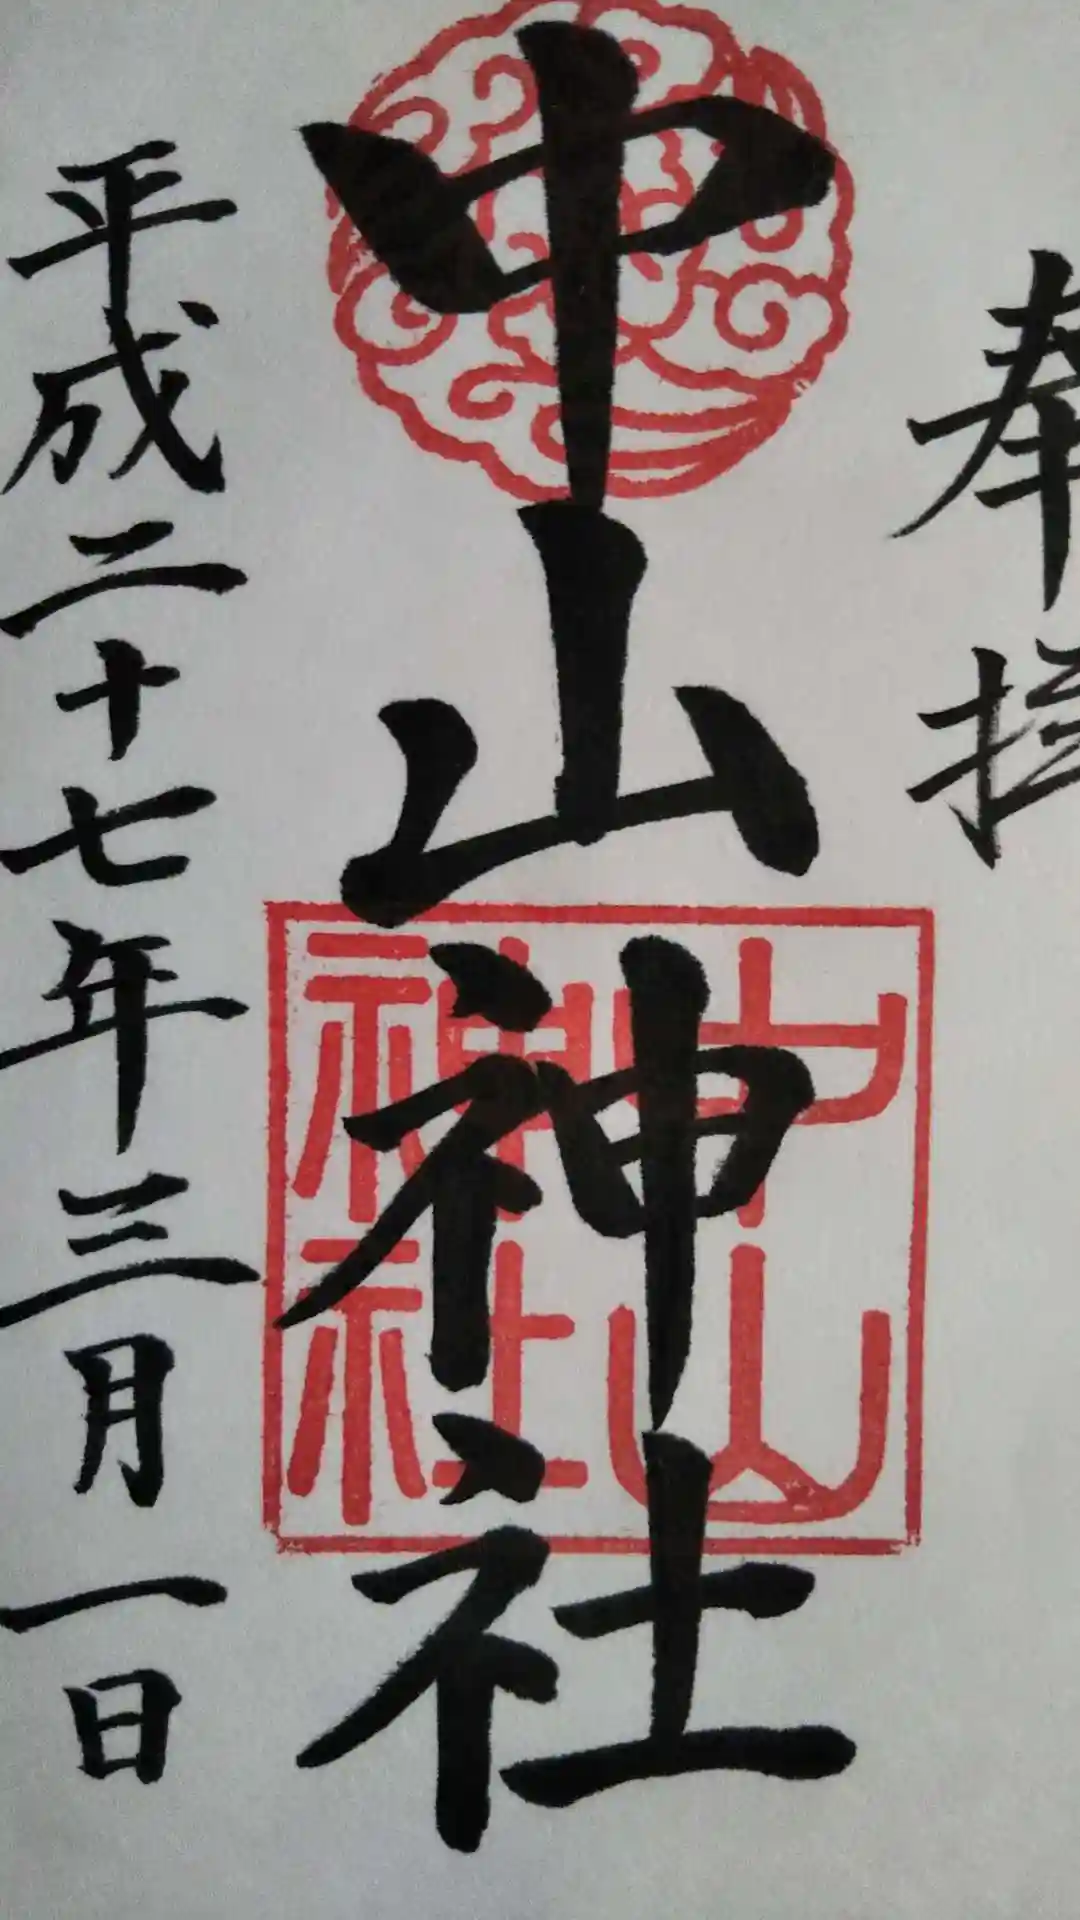 奉拝
中山神社
中山
神社
平成二十七年三月一日